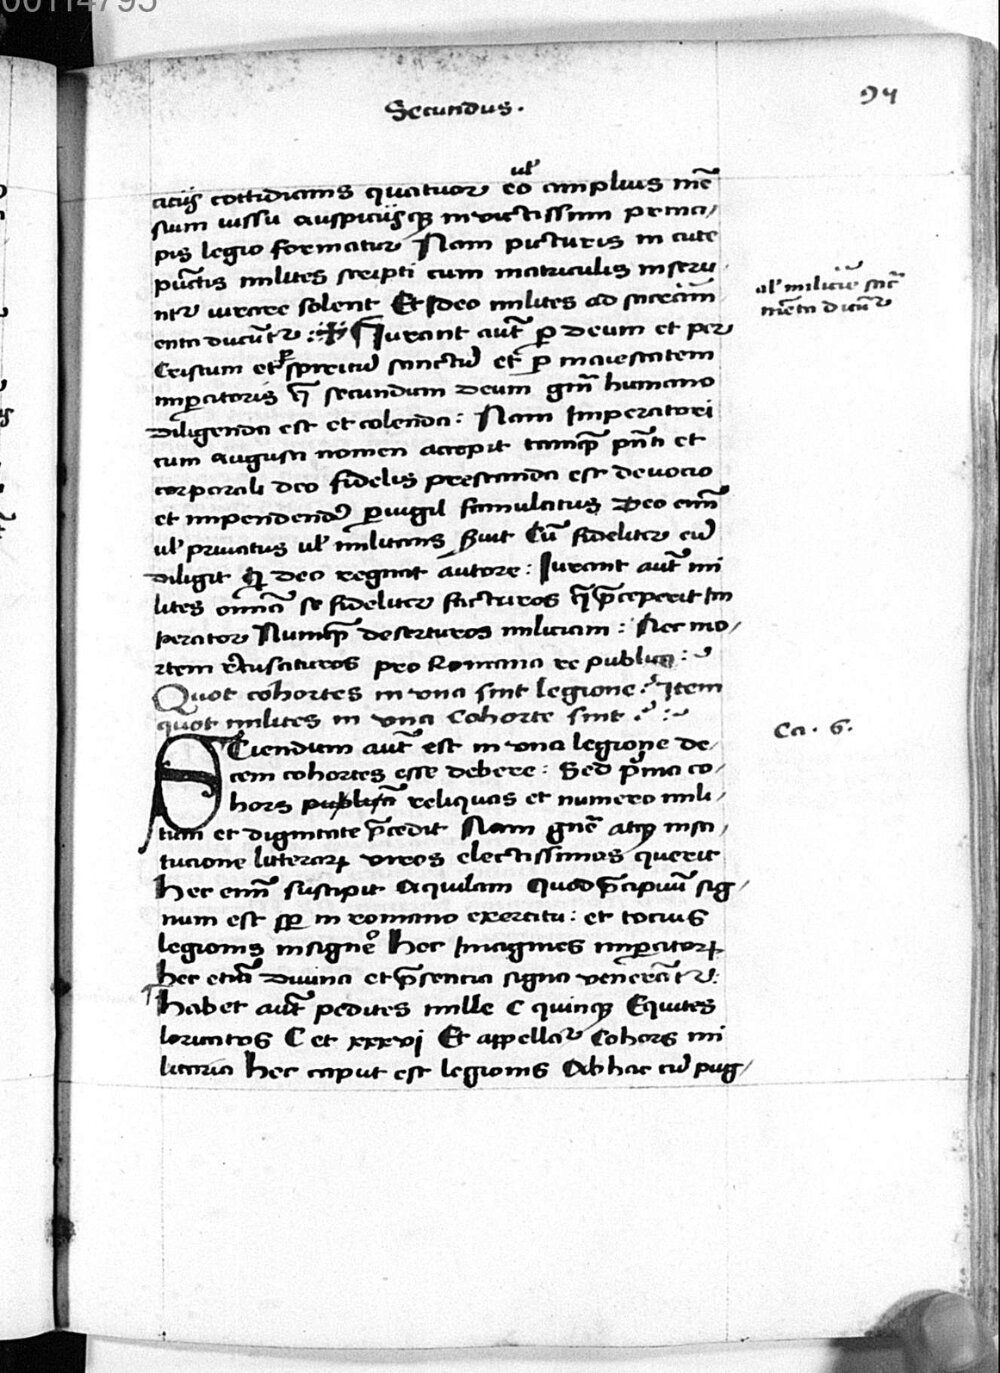 00114795
Secundus.
94
ul'
aciis cottidianis quatuor eo amplius mē
sium iussu auspiciisqꝫ invictissimi princi/
pis legio formatur Nam picturis in cute
pūctis milites scripti cum matriculis inseru
ntr iurare solent Et Ideo milites ad sacramm̄
al' milicie sacͣ
enta ducūtr : Iurant aut̄ ꝑ deum et per
mēta dicūtr
Cristum et ꝑ spiritū sanctū et ꝑ maiestatem
imꝑatoris q̄ secundum deum gn̄i humano
diligenda est et colenda : Nam Imperatori
cum augusti nomen accepit tamqꝫ pn̄ti et
corporali deo fidelis prestanda est devocio
et impendendꝰ ꝑuigil famulatus Deo enim̄
ul' privatus ul' militans s̄uit Cū fideliter eū
diligit qͥ deo regnat autore : Iurant aut̄ mi
lites omīa se fideliter facturos q̄ p̄ceperit Im
perator Numqꝫ deserturos miliciam : Nec mo/
rtem r̄cusaturos pro Romana re publica : ~
Quot cohortes in vna sint legione : Item
quot milites in vna cohorte sint :
Ca. 6.
SCiendum aut̄ est in vna legione de/
cem cohortes esse debere : Sed pͥma co/
hors publicā reliquas et numero mili/
tum et dignitate p̄cedit Nam gn̄e atqꝫ insti/
tucione litterarꝝ viros electissimos querit
hec enim̄ suscipit Aquilam Quod p̄cipuū sig/
num est sꝑ in romano exercitu : et tocius
legionis insigne hec Imagines imꝑatorꝝ
hec etiā divina et p̄sencia signa venerātr :
habet aut̄ pedites mille C quinqꝫ Equites
loricatos C et xxxvi Et appellar Cohors mi
litaria hec caput est legionis Ab hac cū pug/